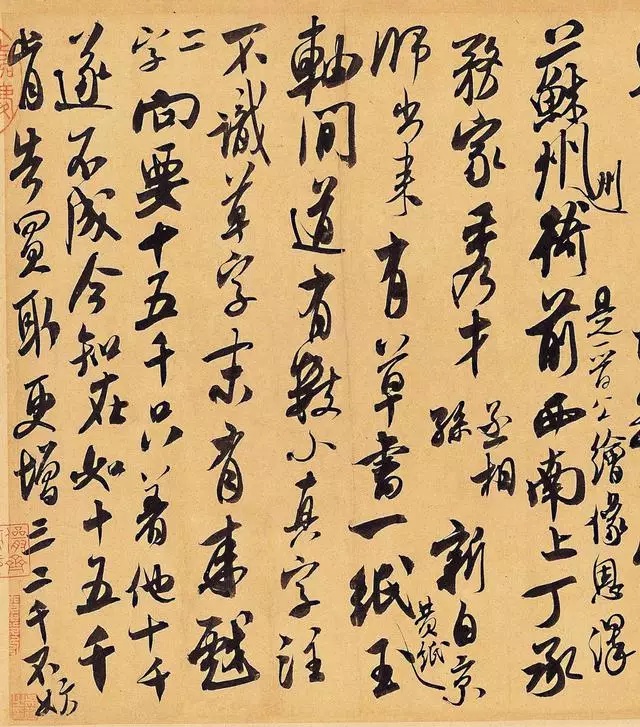 是晋公繪像恩澤
蘇州衙前西南上丁承
州
務家秀才丞相孫新自京
師出来有草書一紙黃紙玉
軸間道有數小真字注
不識草字末有来戲
二字向要十五千只著他十千
遂不成今知在如十五千
肯告買取更增三二千不妨